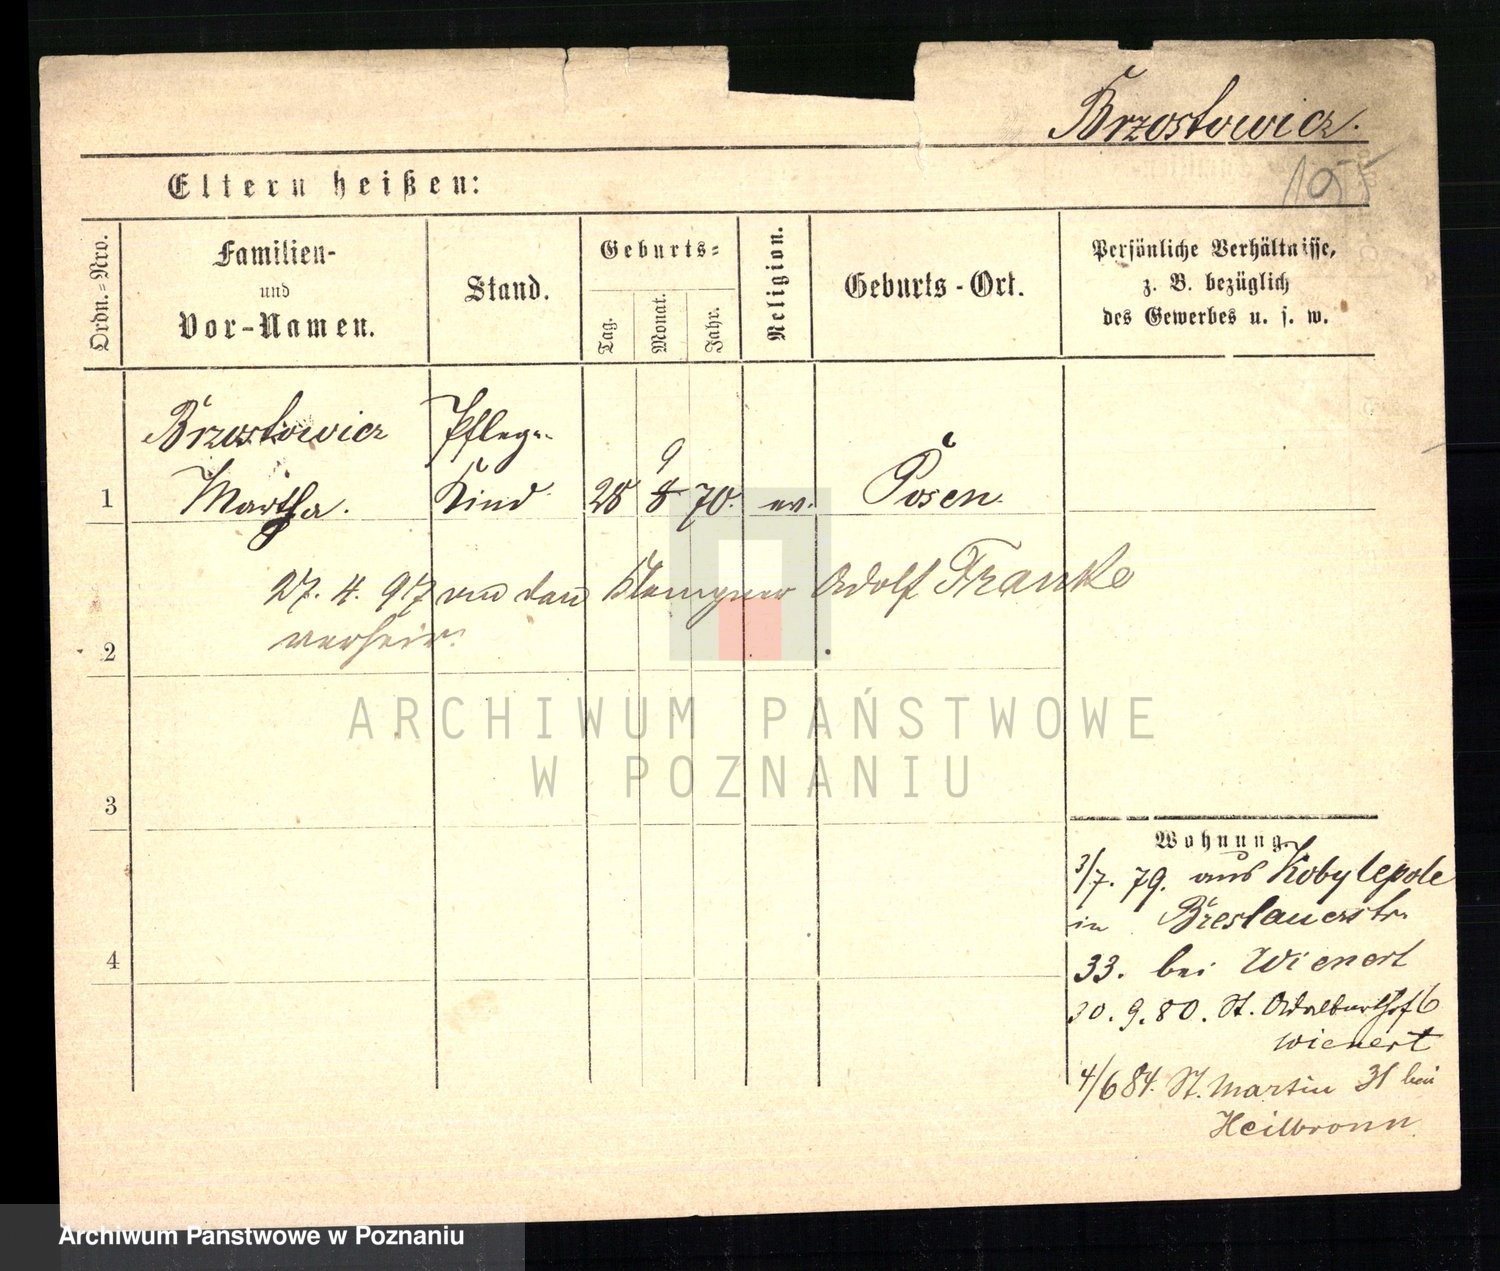 Brzostowicz.
105
Eltern heißen:
Ordn.-Nro.
Familien-
und
Vor-Namen.
Stand.
Geburts-
Tag.
Monat.
Jahr.
Religion.
Geburts-Ort.
Persönliche Verhältnisse,
z. B. bezüglich
des Gewerbes u. s. w.
Brzostowicz Pfleg-
9
1 Martha. Kind 28 8 70. ev. Posen
27. 4. 97 mit dem Klempner Adolf Franke
2 verheir.
ARCHIWUM PAŃSTWOWE
W POZNANIU
3
Wohnung
3/7. 79. aus Kobylepole
in Breslauerstr.
4 33. bei Wienert
30. 9. 80. St. Adalberthof 6
Wienert
4/6 84. St. Martin 31 bei
Heilbronn
Archiwum Państwowe w Poznaniu